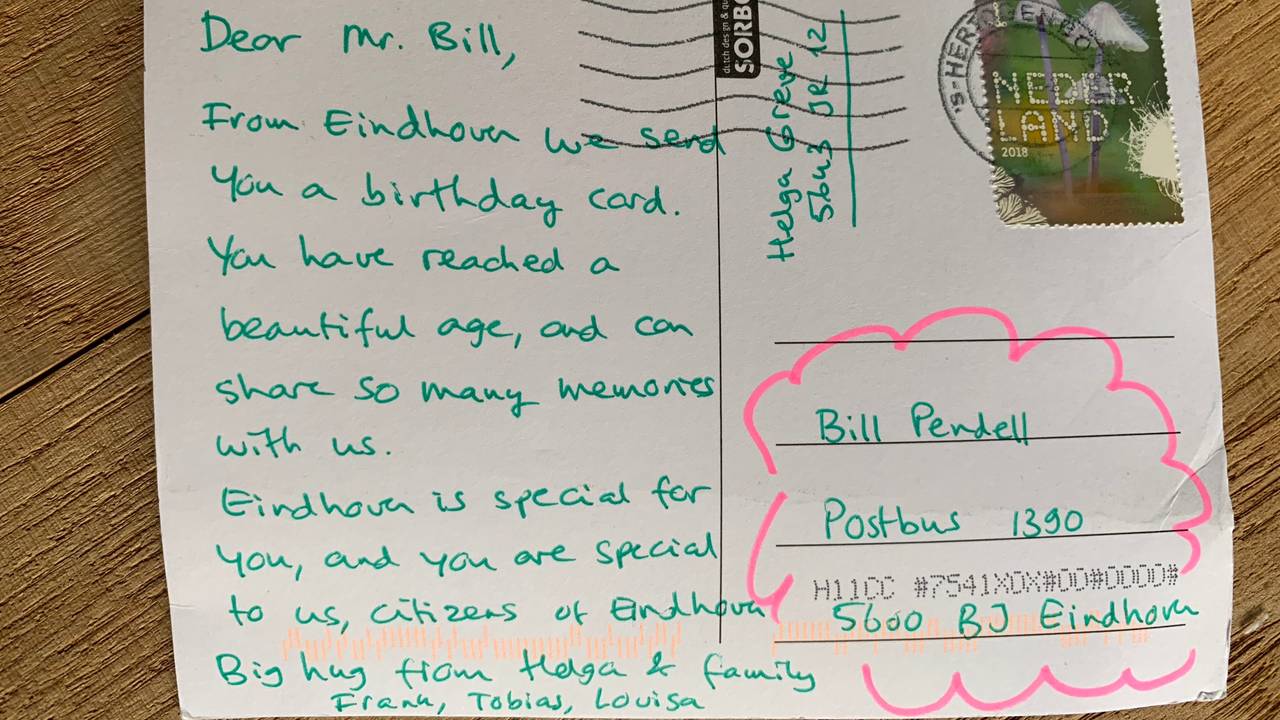 Dear Mr. Bill,
From Eindhoven we send
you a birthday card.
You have reached a
beautiful age, and can
share so many memories
with us.
Eindhoven is special for
you, and you are special
to us, citizens of Eindhoven
Big hug from Helga & family
Frank, Tobias, Louisa
dutch design &
SORBO
Helga Greve
5643 JR 12
'S-HERTOGENBO
NEDER
LAND
2018
Bill Pendell
Postbus 1390
H11CC #7541X0X#00#0000#
5600 BJ Eindhoven